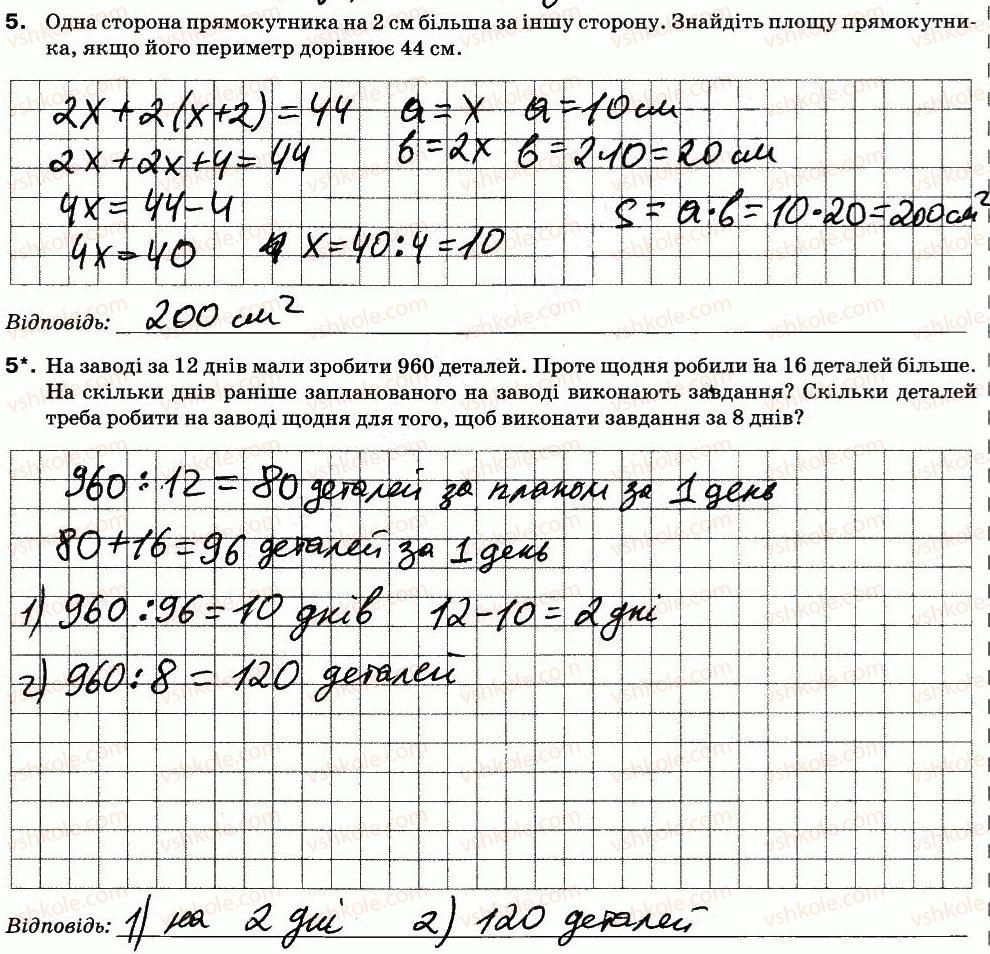 5. Одна сторона прямокутника на 2 см більша за іншу сторону. Знайдіть площу прямокутни-
ка, якщо його периметр дорівнює 44 см.
2x + 2(x+2) = 44 a = x a = 10 см
2x + 2x + 4 = 44 в = 2x в = 2·10 = 20 см
4x = 44 - 4 S = a·в = 10·20 = 200 см²
4x = 40 x = 40:4 = 10
Відповідь: 200 см²
5*. На заводі за 12 днів мали зробити 960 деталей. Проте щодня робили на 16 деталей більше.
На скільки днів раніше запланованого на заводі виконають завдання? Скільки деталей
треба робити на заводі щодня для того, щоб виконати завдання за 8 днів?
960 : 12 = 80 деталей за планом за 1 день
80 + 16 = 96 деталей за 1 день
1) 960 : 96 = 10 днів 12 - 10 = 2 дні
2) 960 : 8 = 120 деталей
Відповідь: 1) на 2 дні 2) 120 деталей